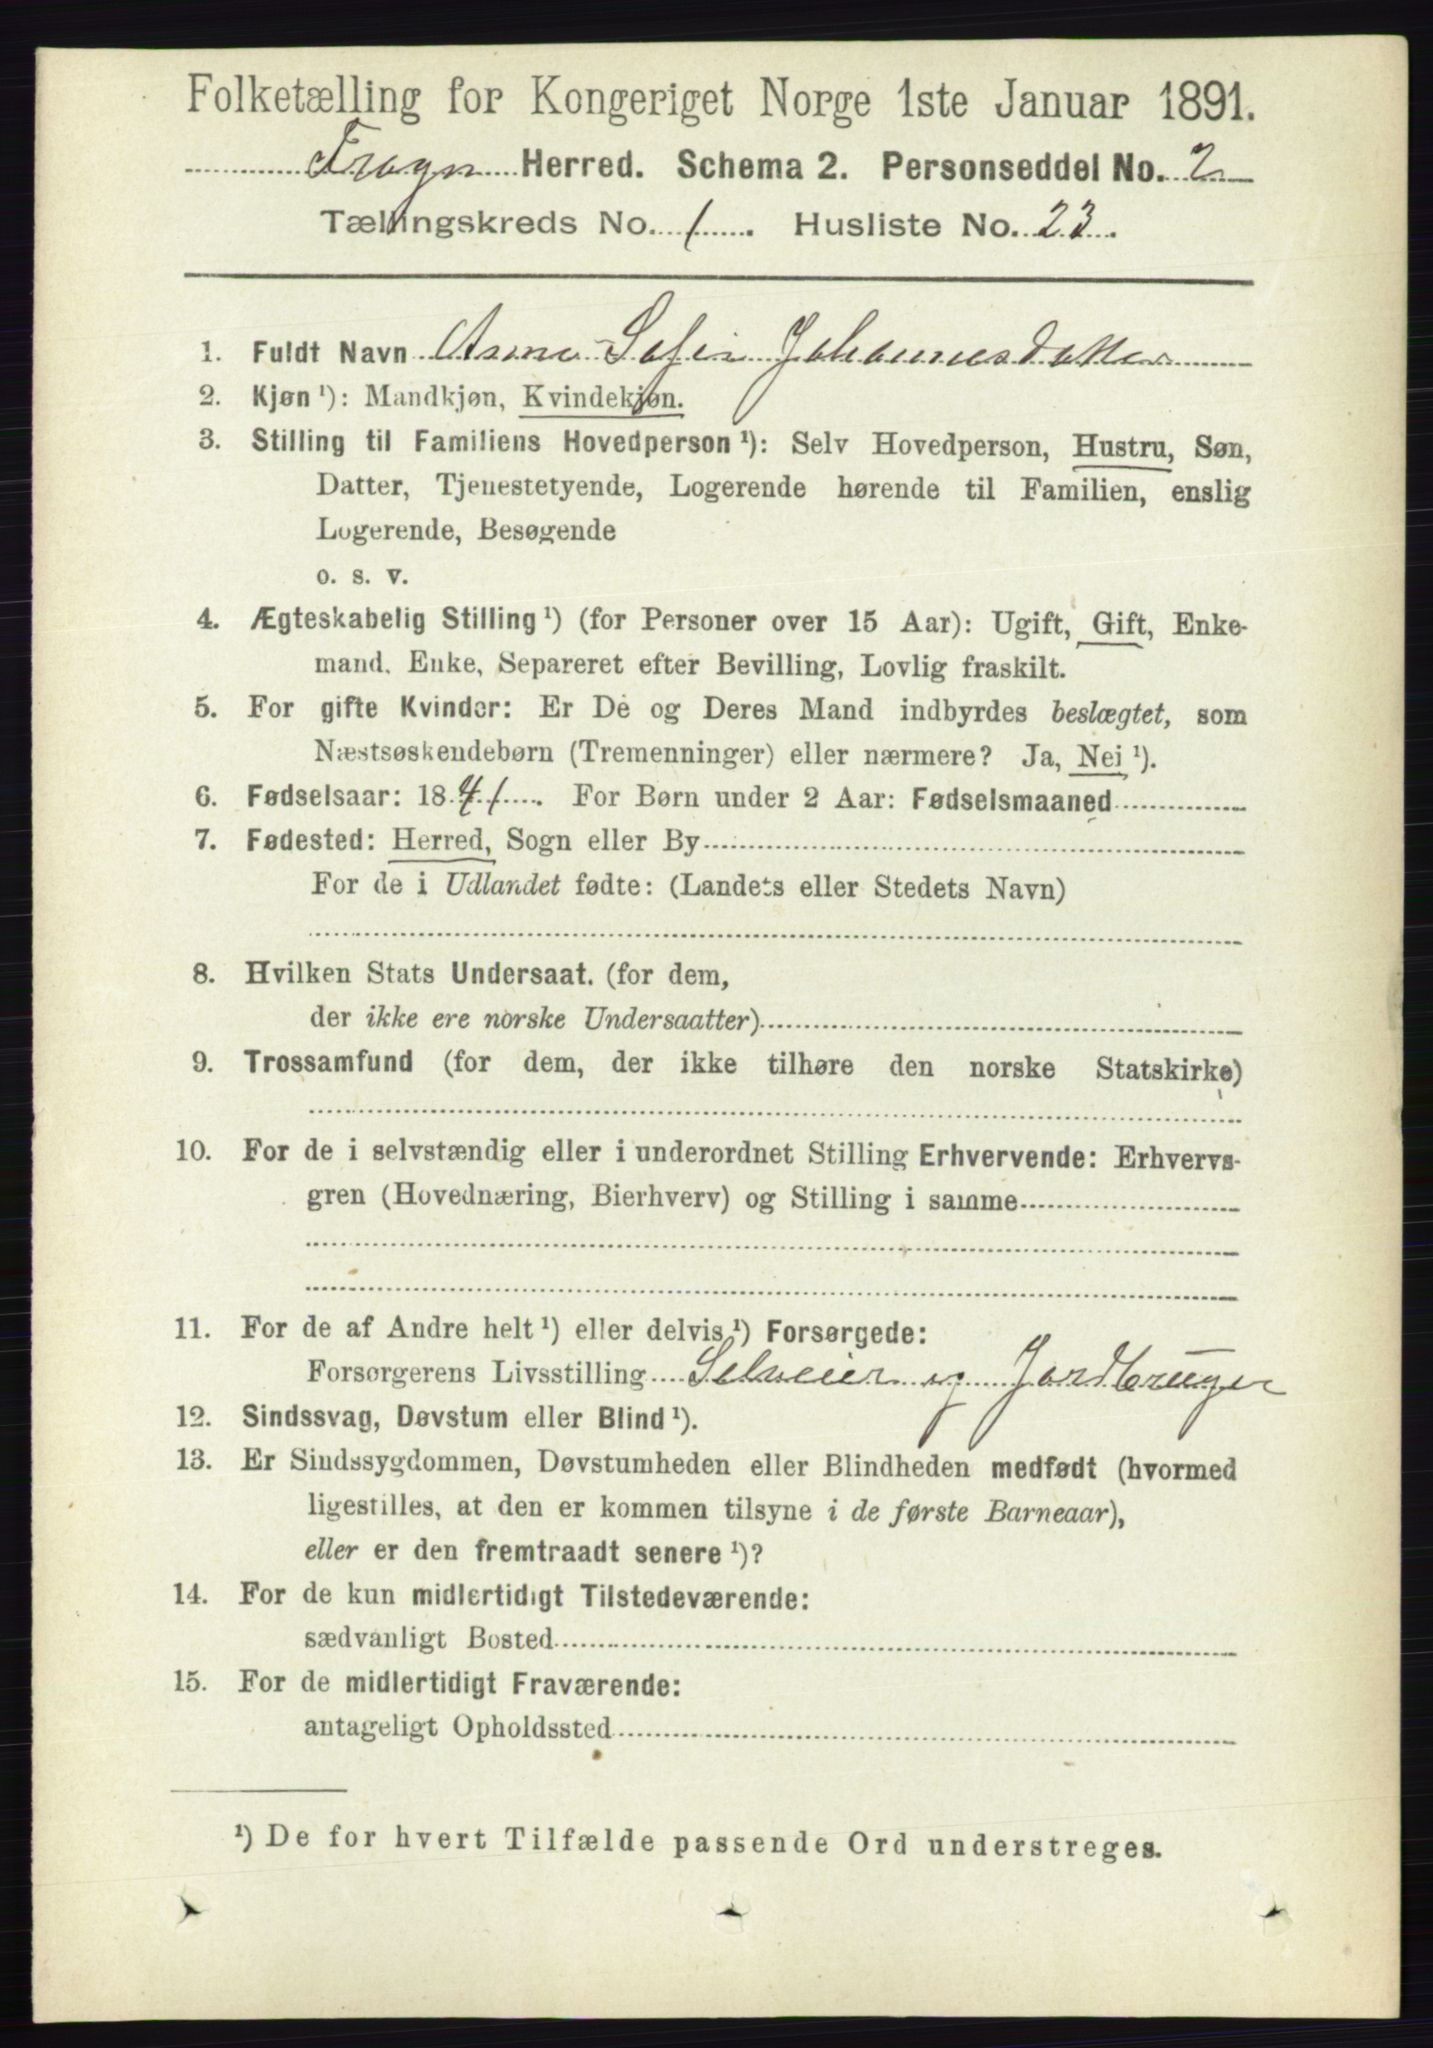 Folketælling for Kongeriget Norge 1ste Januar 1891.
Frogn Herred. Schema 2. Personseddel No. 2
Tællingskreds No. 1. Husliste No. 23.
1. Fuldt Navn Anne Sofie Johannesdatter
2. Kjøn ¹): Mandkjøn, Kvindekjøn.
3. Stilling til Familiens Hovedperson ¹): Selv Hovedperson, Hustru, Søn,
Datter, Tjenestetyende, Logerende hørende til Familien, enslig
Logerende, Besøgende
o. s. v.
4. Ægteskabelig Stilling ¹) (for Personer over 15 Aar): Ugift, Gift, Enke-
mand, Enke, Separeret efter Bevilling, Lovlig fraskilt.
5. For gifte Kvinder: Er De og Deres Mand indbyrdes beslægtet, som
Næstsøskendebørn (Tremenninger) eller nærmere? Ja, Nei ¹).
6. Fødselsaar: 1841. For Børn under 2 Aar: Fødselsmaaned
7. Fødested: Herred, Sogn eller By
For de i Udlandet fødte: (Landets eller Stedets Navn)
8. Hvilken Stats Undersaat. (for dem,
der ikke ere norske Undersaatter)
9. Trossamfund (for dem, der ikke tilhøre den norske Statskirke)
10. For de i selvstændig eller i underordnet Stilling Erhvervende: Erhvervs-
gren (Hovednæring, Bierhverv) og Stilling i samme
11. For de af Andre helt ¹) eller delvis ¹) Forsørgede:
Forsørgerens Livsstilling Selveier og Jordbruger
12. Sindssvag, Døvstum eller Blind ¹).
13. Er Sindssygdommen, Døvstumheden eller Blindheden medfødt (hvormed
ligestilles, at den er kommen tilsyne i de første Barneaar),
eller er den fremtraadt senere ¹)?
14. For de kun midlertidigt Tilstedeværende:
sædvanligt Bosted
15. For de midlertidigt Fraværende:
antageligt Opholdssted
¹) De for hvert Tilfælde passende Ord understreges.